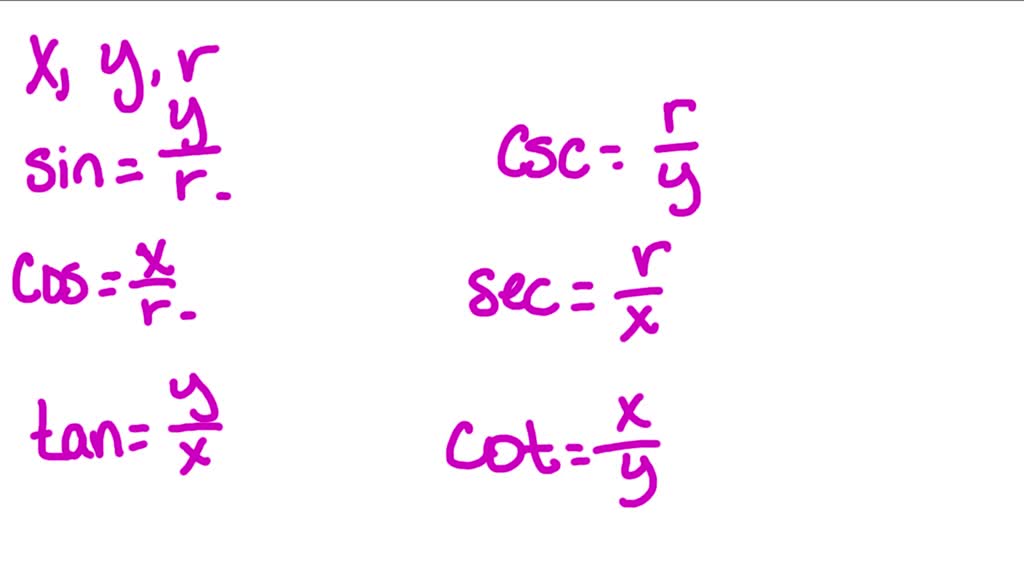 x, y, r
sin = y/r
csc = r/y
cos = x/r
sec = r/x
tan = y/x
cot = x/y